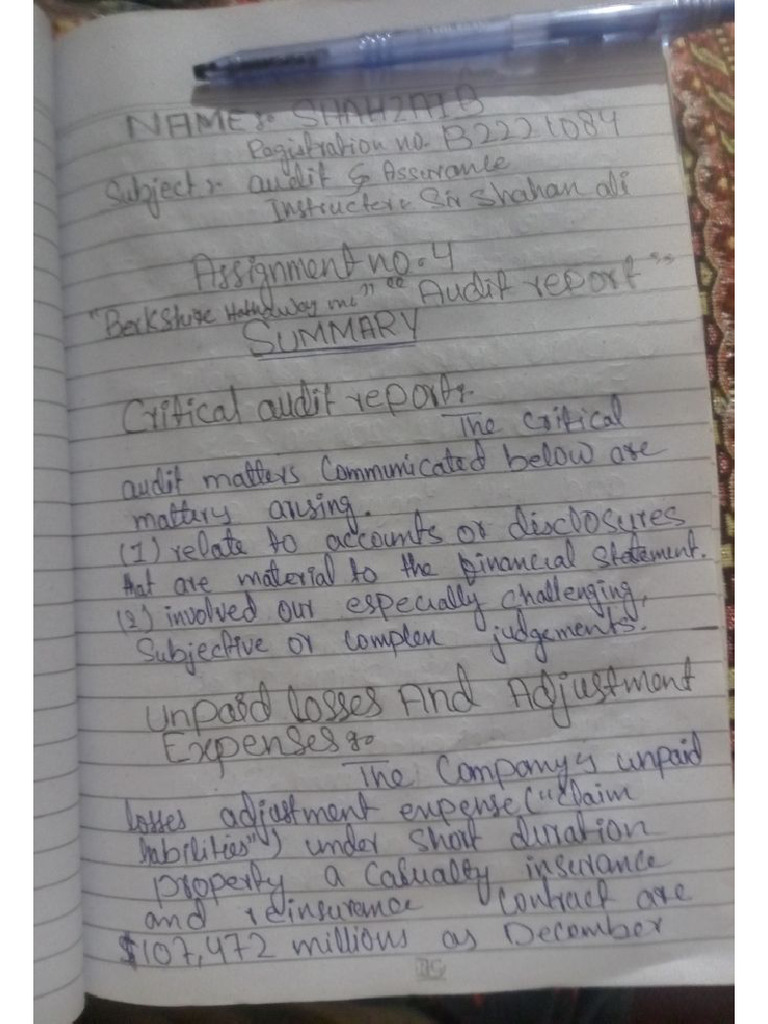 NAME:- SHAHZAIB
Pagistration no. B2221084
Subject:- audit & Assurance
Instructer:- Sir Shahan ali
Assignment no. 4
"Berkshire Hathaway inc" "Audit report"
SUMMARY
Critical audit report:-
The critical
audit matters Communicated below are
matters arising.
(1) relate to accounts or disclosures
that are material to the financial statement.
(2) involved our especially challenging,
Subjective or complex judgements.
Unpaid losses And Adjustment
Expenses:-
The Company's unpaid
losses adjustment expense ("claim
liabilities") under short duration
property a Casualty insurance
and reinsurance contract are
$107,472 millions as December